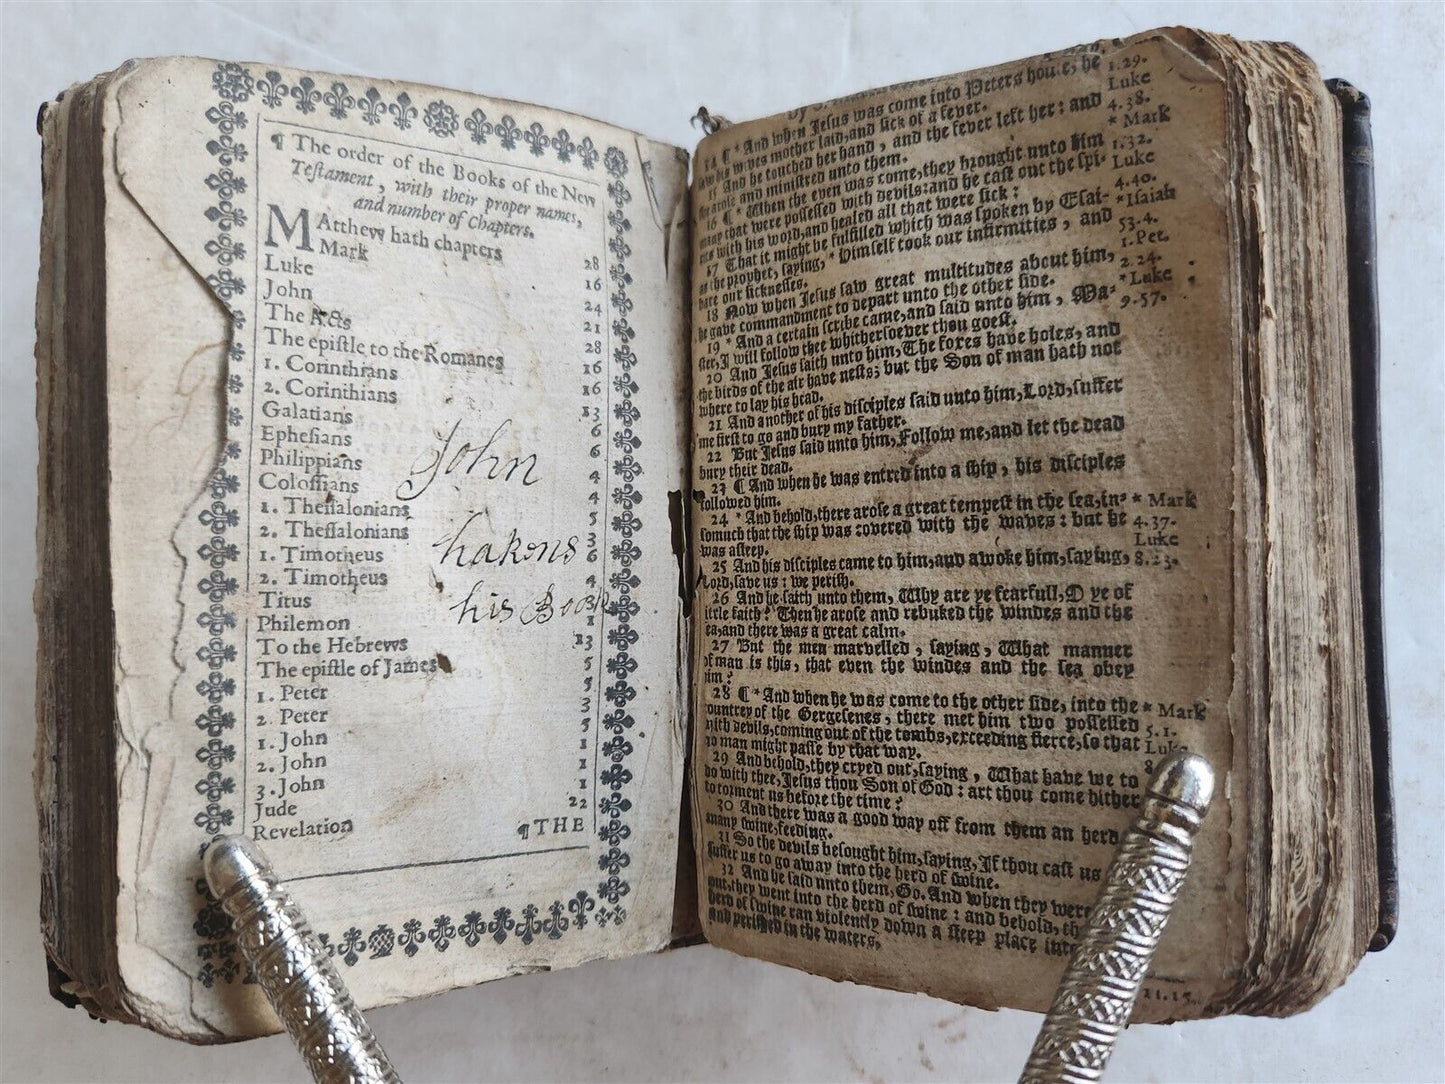 ¶ The order of the Books of the New
Testament, with their proper names,
and number of Chapters.
MAtthew hath chapters 28
Mark 16
Luke 24
John 21
The Acts 28
The epistle to the Romanes 16
1. Corinthians 16
2. Corinthians 13
Galatians 6
Ephesians 6
Philippians 4
Colossians 4
1. Thessalonians 5
2. Thessalonians 3
1. Timotheus 6
2. Timotheus 4
Titus 3
Philemon 1
To the Hebrews 13
The epistle of James 5
1. Peter 5
2. Peter 3
1. John 5
2. John 1
3. John 1
Jude 1
Revelation 22
¶THE
John
hakens
his Book
14 ¶ * And when Jesus was come into Peters house, he
saw his wives mother laid, and sick of a fever.
15 And he touched her hand, and the fever left her: and
she arose and ministred unto them.
16 ¶ * When the even was come, they brought unto him
many that were possessed with devils: and he cast out the spi-
rits with his word, and healed all that were sick:
17 That it might be fulfilled which was spoken by Esai-
as the prophet, saying, * Himself took our infirmities, and
bare our sicknesses.
18 Now when Jesus saw great multitudes about him,
he gave commandment to depart unto the other side.
19 * And a certain scribe came, and said unto him, Ma-
ster, I will follow thee whithersoever thou goest.
20 And Jesus saith unto him, The foxes have holes, and
the birds of the air have nests; but the Son of man hath not
where to lay his head.
21 And another of his disciples said unto him, Lord, suffer
me first to go and bury my father.
22 But Jesus said unto him, Follow me, and let the dead
bury their dead.
23 ¶ And when he was entred into a ship, his disciples
followed him.
24 * And behold, there arose a great tempest in the sea, in-
somuch that the ship was covered with the waves: but he
was asleep.
25 And his disciples came to him, and awoke him, saying,
Lord, save us: we perish.
26 And he saith unto them, Why are ye fearfull, O ye of
ittle faith? Then he arose and rebuked the windes and the
ea, and there was a great calm.
27 But the men marvelled, saying, What manner
of man is this, that even the windes and the sea obey
him?
28 ¶ * And when he was come to the other side, into the
countrey of the Gergesenes, there met him two possessed
with devils, coming out of the tombs, exceeding fierce, so that
no man might passe by that way.
29 And behold, they cryed out, saying, What have we to
do with thee, Jesus thou Son of God: art thou come hither
to torment us before the time?
30 And there was a good way off from them an herd
many swine, feeding.
31 So the devils besought him, saying, If thou cast us
suffer us to go away into the herd of swine.
32 And he said unto them, Go. And when they were
out, they went into the herd of swine: and behold, th
herd of swine ran violently down a steep place into
and perished in the waters.
1.29.
Luke
4.38.
* Mark
1.32.
Luke
4.40.
* Isaiah
53.4.
1. Pet.
2.24.
* Luke
9.57.
* Mark
4.37.
Luke
8.23.
* Mark
5.1.
Luke
8
11.15